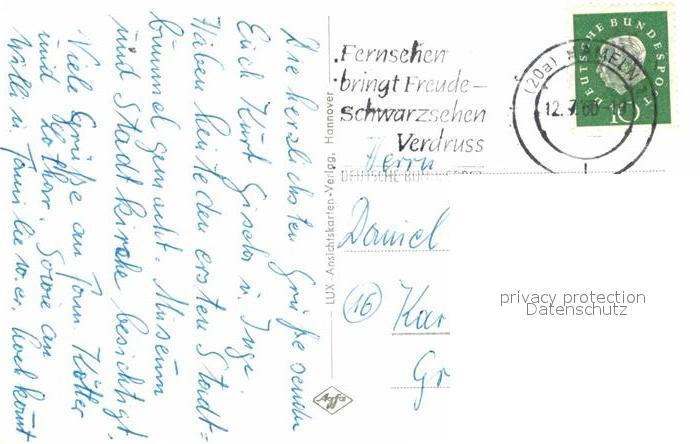 Die herzlichsten Grüße senden
Euch Kurt Gisela u. Inge.
Haben heute den ersten Stadt=
bummel gemacht. Museum
und Stadtkirche besichtigt.
Viele Grüße an Fam. Kötter
und Lothar. Sowie an
Willi u.
Fernsehen
bringt Freude –
Schwarzsehen
Verdruss
DEUTSCHE BUNDESPOST
(20a)
12.7.60
DEUTSCHE BUNDESPOST
10
Herrn
Daniel
(16) Kar
Gr
LUX Ansichtskarten-Verlag, Hannover
Agfa
privacy protection
Datenschutz